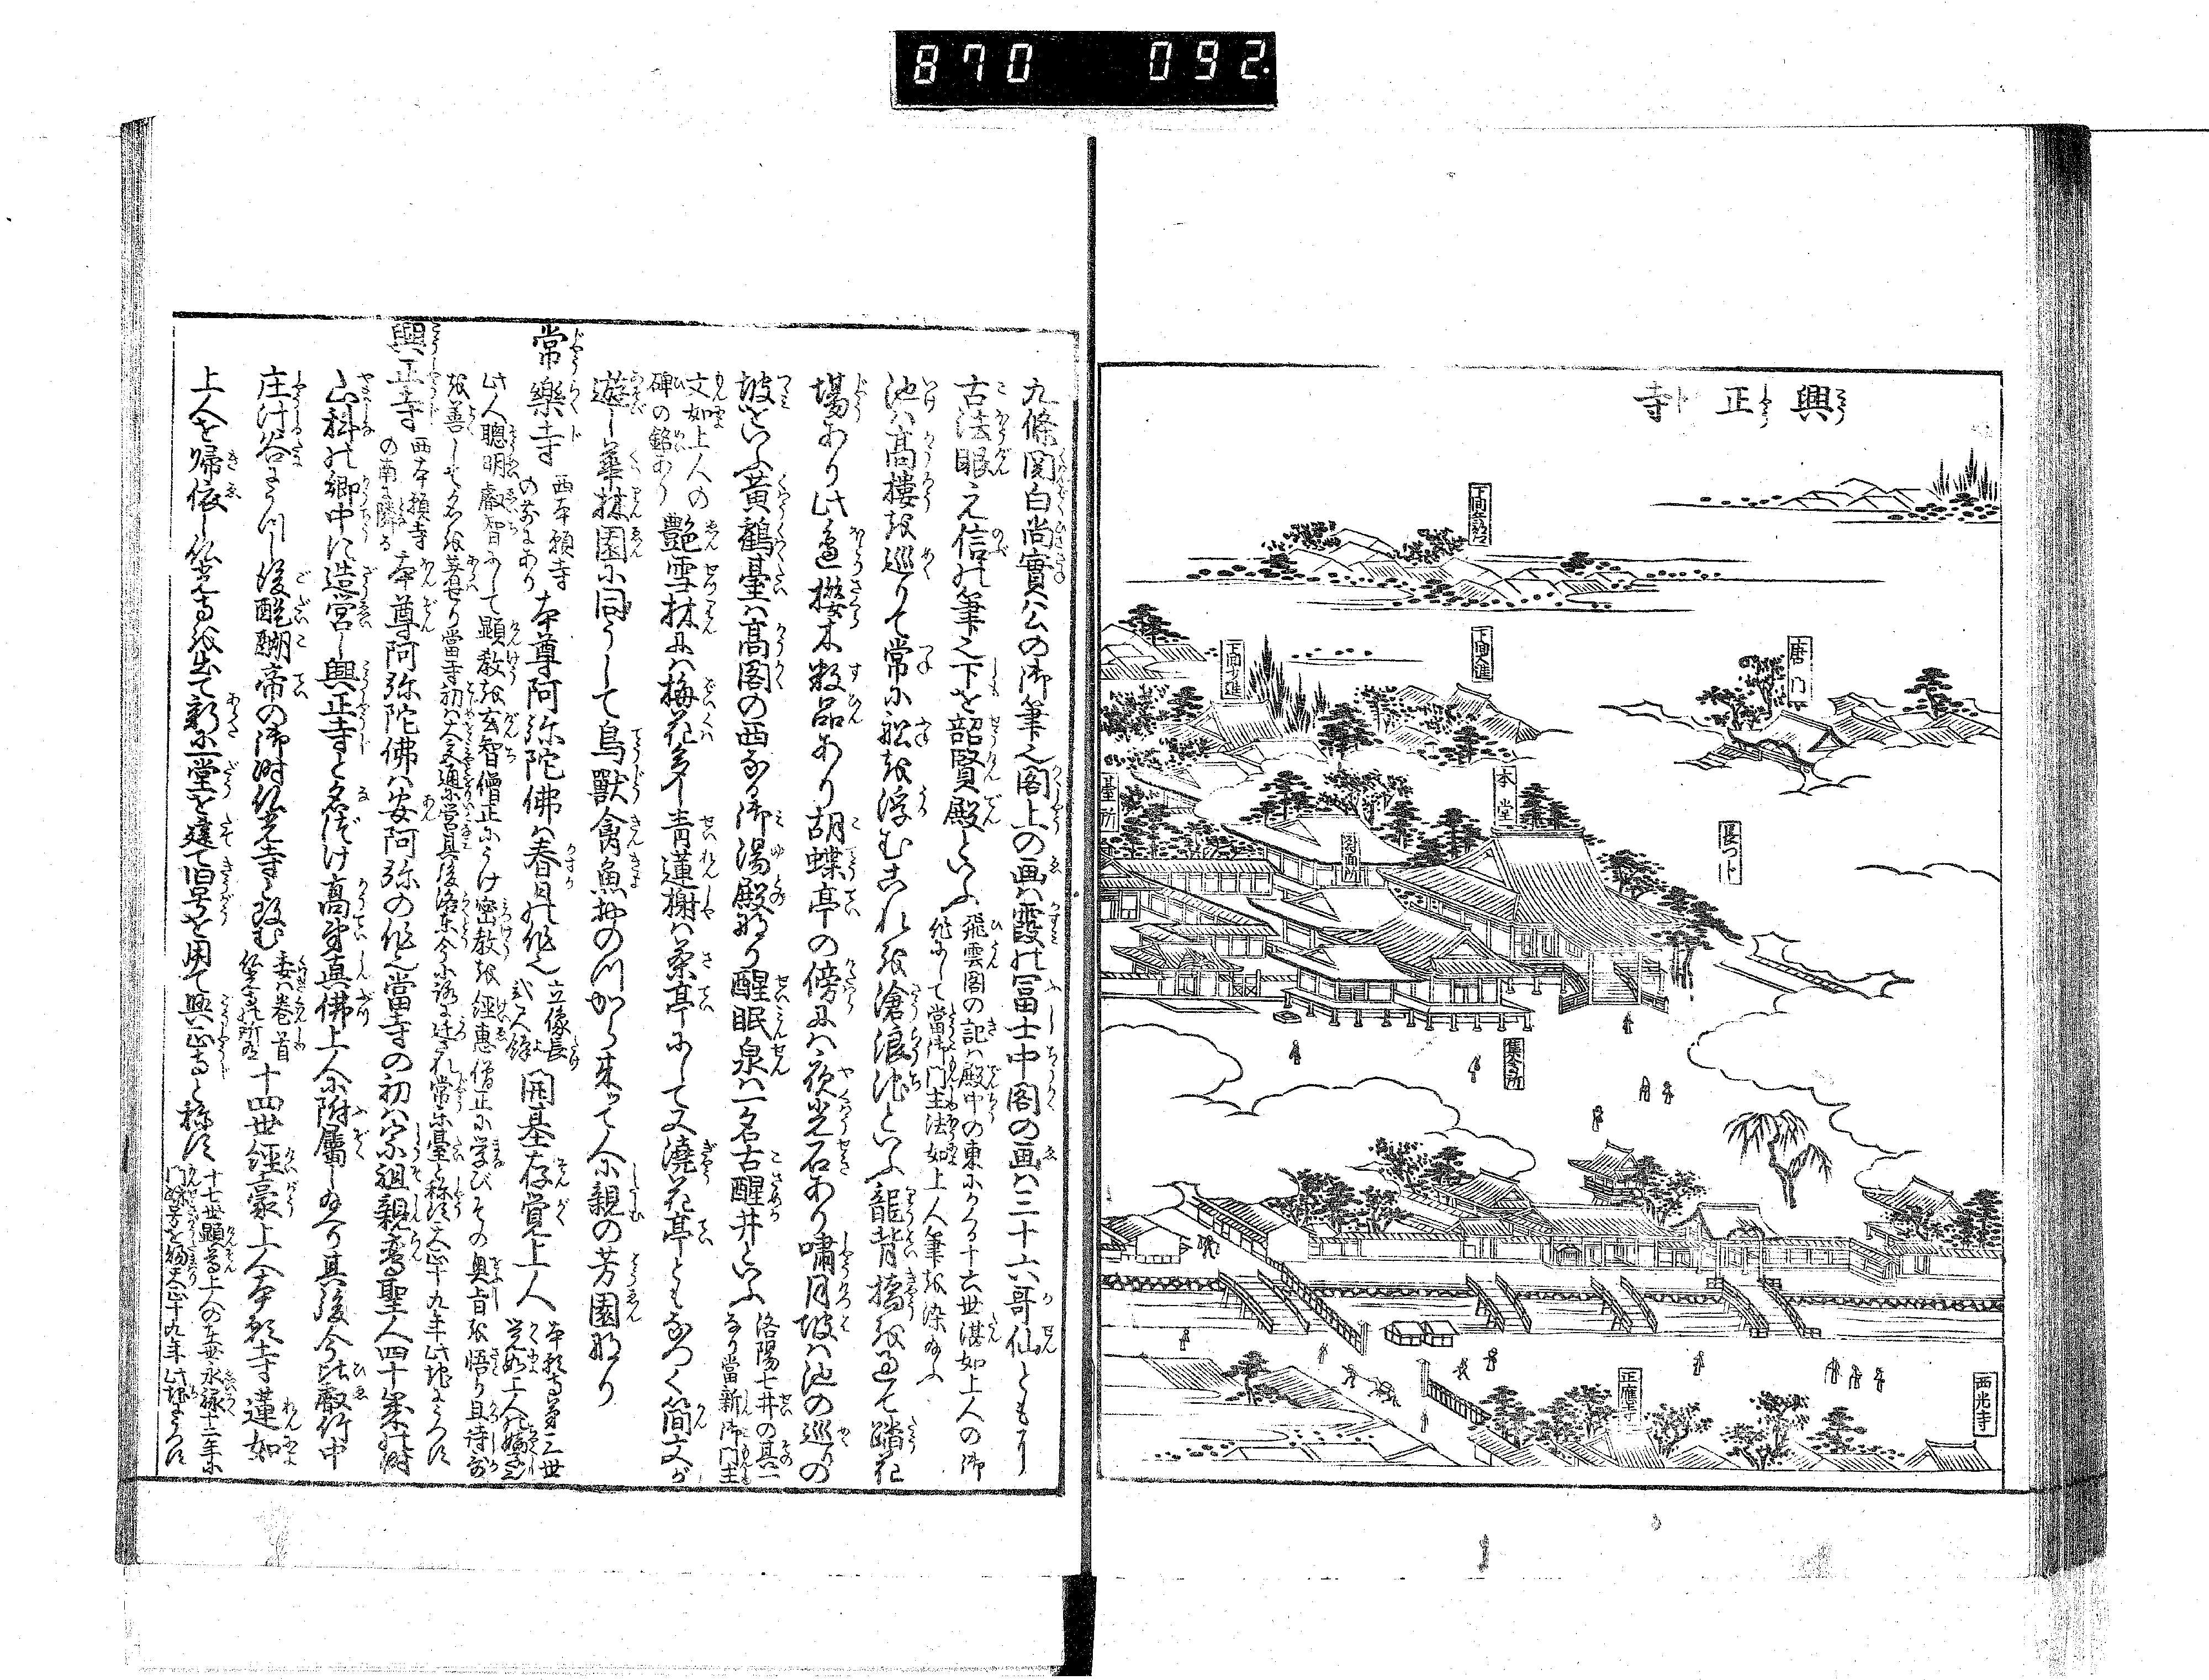 870 092.
興正寺
下間大進
下間少進
唐門
本堂
臺所
對面所
集會所
正應寺
西光寺
九條関白尚實公の御筆也閣上の画ハ霞の冨士中閣の画ハ三十六哥仙ともに
古法眼元信の筆也下を韶賢殿といふ
飛雲閣の記ハ殿中の東にかくる十六世湛如上人の御
作にして當御門主法如上人筆を染給ふ
池ハ高樓を巡りて常に舩を浮むこれを滄浪池といふ龍背橋を過て踏花
場あり此邉櫻木数品あり胡蝶亭の傍にハ夜光石あり嘯月坡ハ池の巡りの
坡をいふ黄鶴臺ハ高閣の西なる御湯殿なり醒眠泉ハ一名古醒井といふ
洛陽七井の其一
なり當新御門主
文如上人の
碑の銘あり
艶雪林にハ梅花多し青蓮榭ハ茶亭にして又澆花亭ともなつく簡文が
遊し華林園に同うして鳥獸禽魚神のづから来つて人に親の芳園なり
常樂寺
西本願寺
の前にあり
本尊阿弥陀佛ハ春日の作也
立像長
弐尺餘
開基存覚上人
本願寺第三世
覚如上人の嫡子也
此人聰明叡智にして顕教を玄智僧正にうけ密教を經惠僧正に学びその奥旨を悟り且詩哥
を善してその名を著せり當寺初ハ大宮通に営其後洛東今小路に迁され常樂臺と称す天正十九年此地にうつす
興正寺
西本願寺
の南に隣る
本尊阿弥陀佛ハ安阿弥の作也當寺の初ハ宗祖親鸞聖人四十歳の時
山科の郷中に造営し興正寺と名づけ高弟真佛上人に附屬し給へり其後今比叡竹中
庄汁谷にうつし後醍醐帝の御時佛光寺と改む
委ハ巻首
佛光寺の所ニ
十四世經豪上人本願寺蓮如
上人を帰依し佛光寺を出て新に一堂を建て旧号を用て興正寺と称す
十七世顕尊上人の時永禄十二年に
門跡号を賜天正十九年此地にうつす